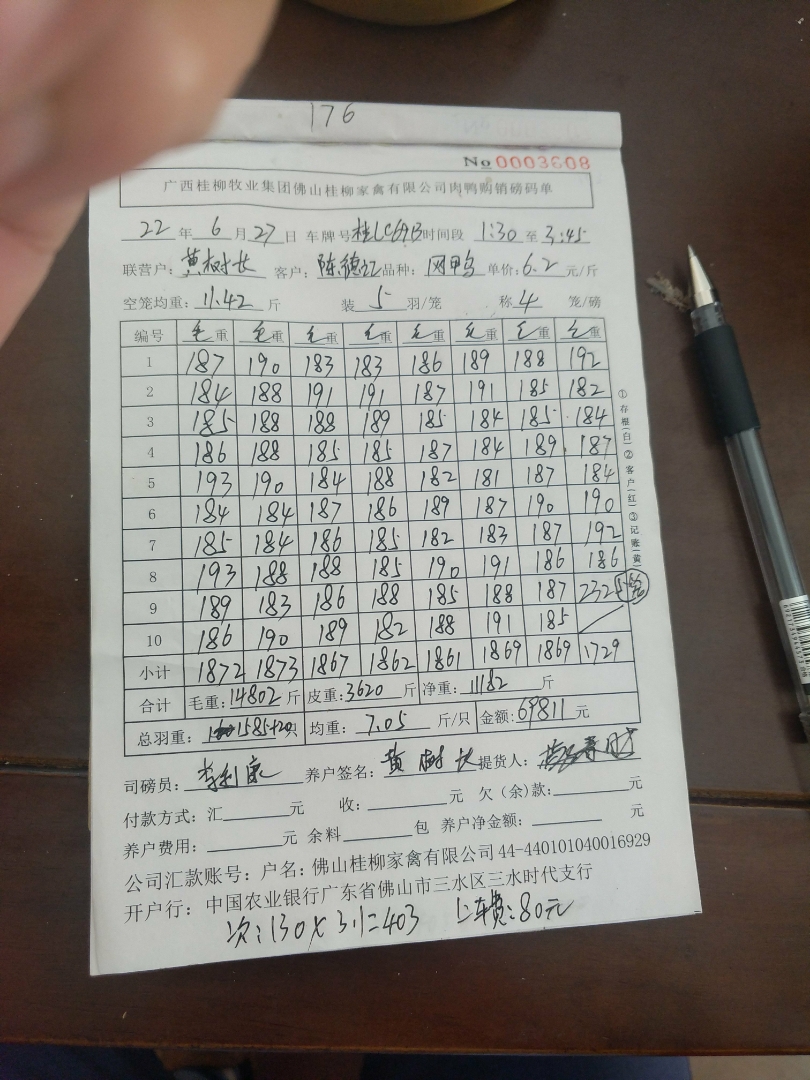 176
No 0003608
广西桂柳牧业集团佛山桂柳家禽有限公司肉鸭购销磅码单
22 年 6 月 27 日 车牌号 时间段 1:30 至 3:45
联营户: 黄树长 客户: 陈德江 品种: 网鸭 单价: 6.2 元/斤
空笼均重: 11.42 斤 装 5 羽/笼 称 4 笼/磅
编号 毛重 毛重 毛重 毛重 毛重 毛重 毛重 毛重
1 187 190 183 183 186 189 188 192
2 184 188 191 191 187 191 185 182
3 185 188 188 189 185 184 185 184
4 186 188 185 185 187 184 189 187
5 193 190 184 188 182 181 187 184
6 184 184 187 186 189 187 190 190
7 185 184 186 185 182 183 187 192
8 193 188 188 185 190 191 186 186
9 189 183 186 188 185 188 187 232
10 186 190 189 182 188 191 185
小计 1872 1873 1867 1862 1861 1869 1869 1729
合计 毛重: 14802 斤 皮重: 3620 斤 净重: 11182 斤
总羽重: 1585+20 只 均重: 7.05 斤/只 金额: 69811 元
司磅员: 李利康 养户签名: 黄树长 提货人:
付款方式: 汇 元 收: 元 欠(余)款: 元
养户费用: 元 余料 包 养户净金额: 元
公司汇款账号: 户名: 佛山桂柳家禽有限公司 44-440101040016929
开户行: 中国农业银行广东省佛山市三水区三水时代支行
次: 130×3.1=403 上车费: 80元
①存根(白)②客户(红)③记账(黄)